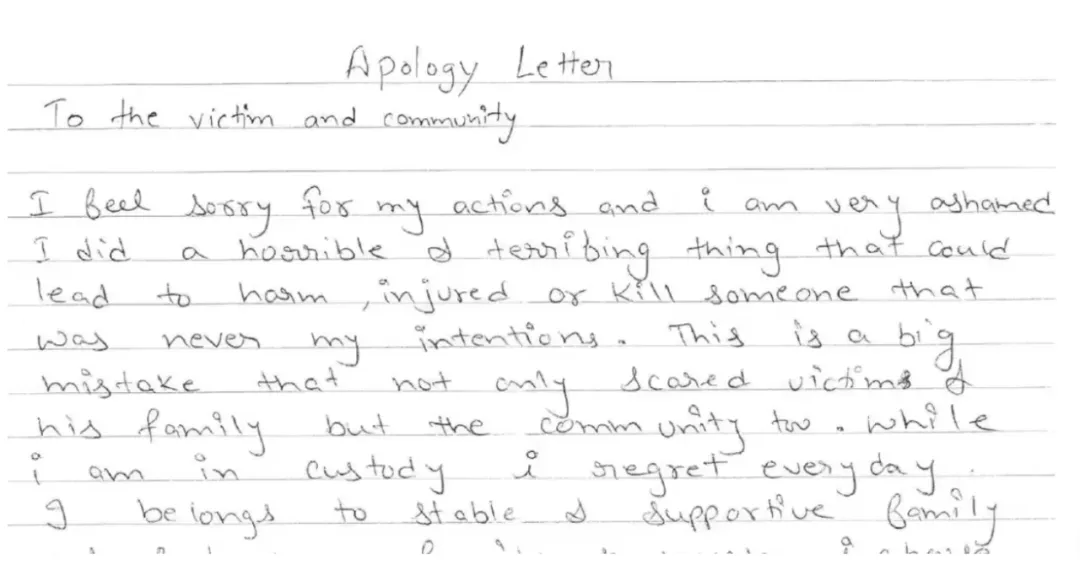 Apology Letter
To the victim and community
I feel sorry for my actions and i am very ashamed
I did a horrible & terribing thing that could
lead to harm , injured or kill someone that
was never my intentions. This is a big
mistake that not only scared victims &
his family but the community too . while
i am in custody i regret everyday .
I belongs to stable & supportive family